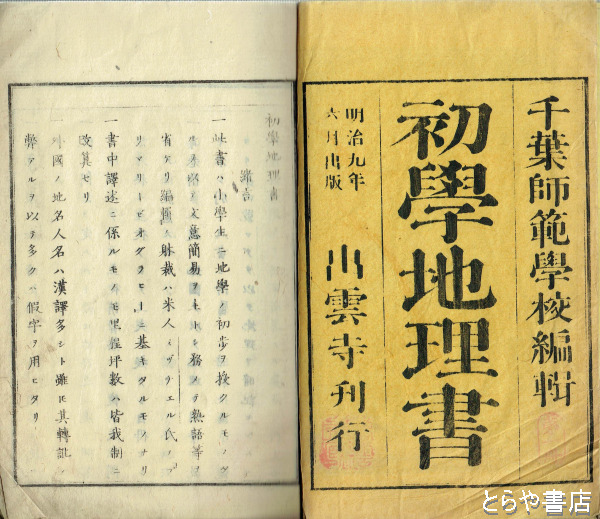 千葉師範學校編輯
初學地理書
明治九年
六月出版
出雲寺刊行
初學地理書
緒言
一此書ハ小學生ニ地學ノ初歩ヲ授クルモノ
文意簡易ヲ
務メテ熟語等ヲ
省ケリ編圖ノ躰裁ハ米人ミッウエル氏ノプ
リマリーゼオグラヒーニ基キタルモノナリ
一書中譯述ニ係ルモノモ里程坪數ハ皆我制ニ
改算セリ
一外國ノ地名人名ハ漢譯多シト雖𪜈其轉訛ノ
弊アルヲ以テ多クハ假字ヲ用ヒタリ
とらや書店